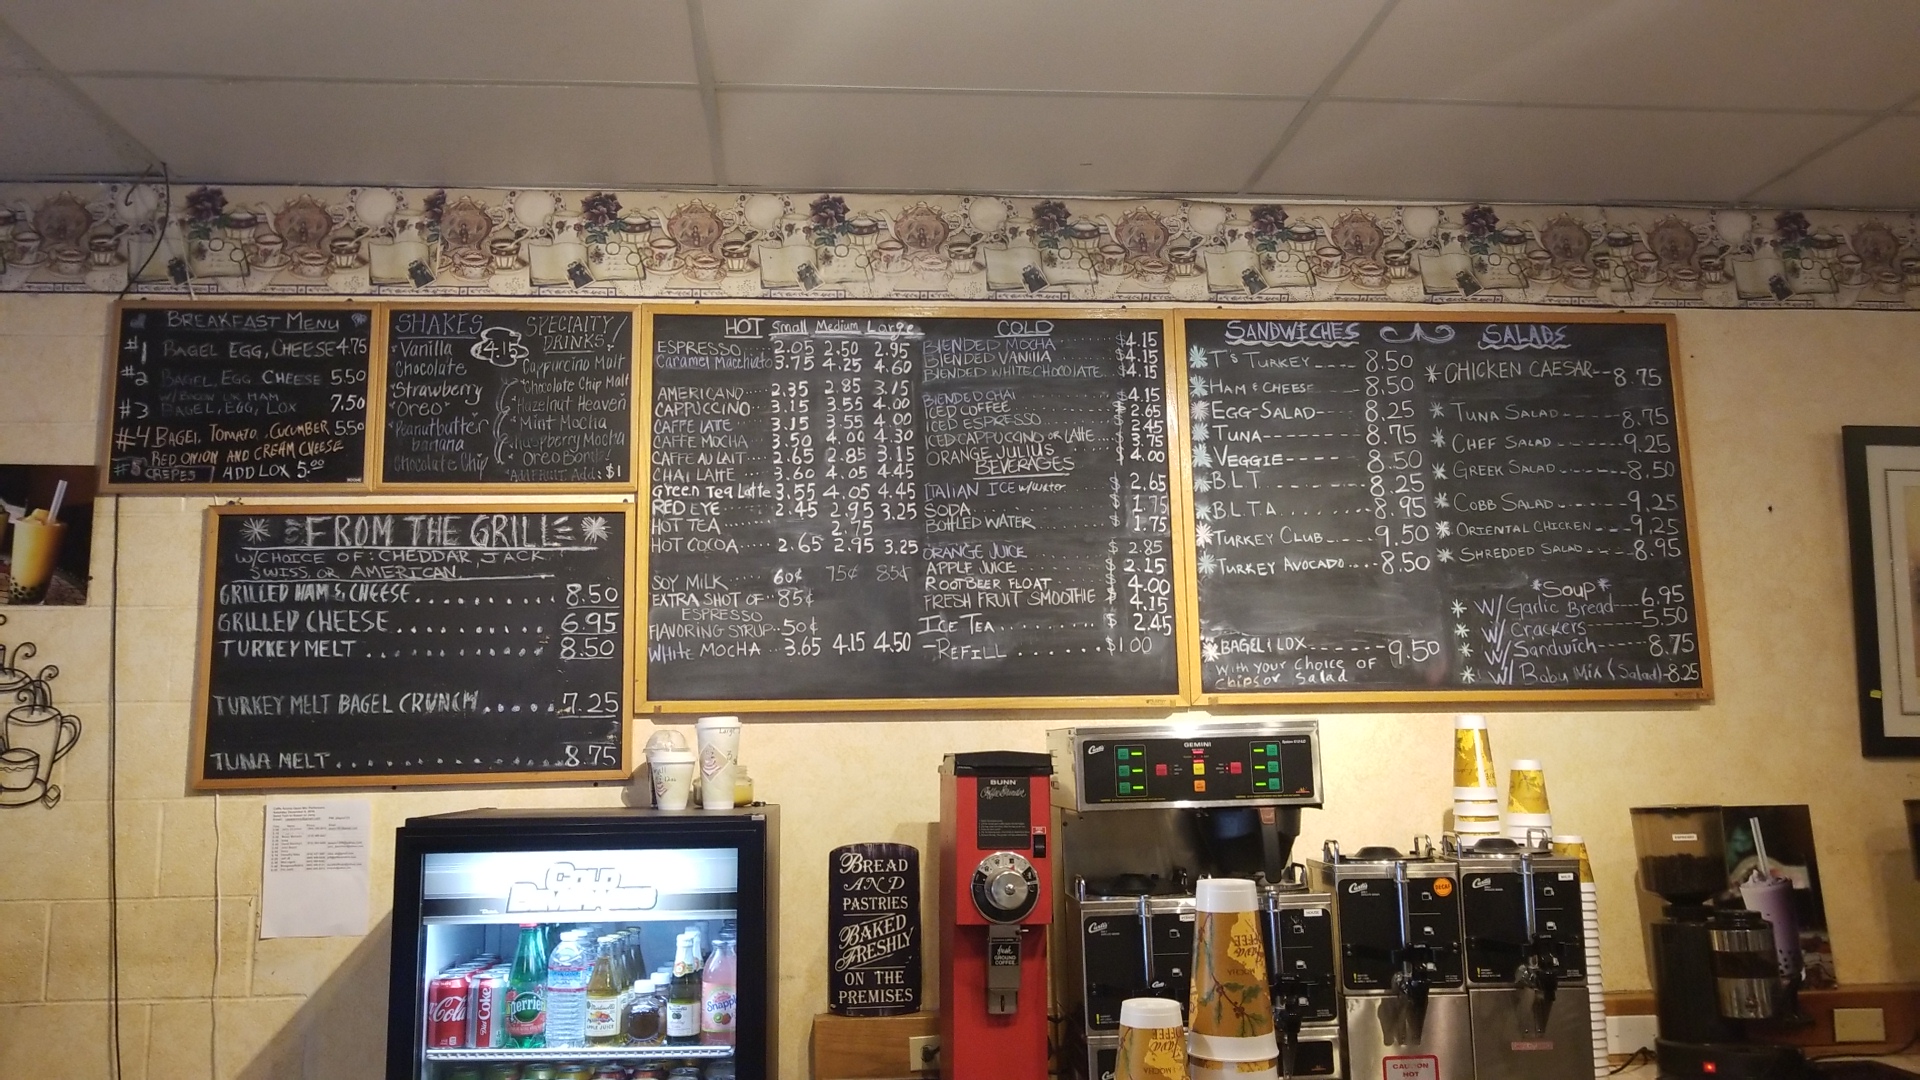 BREAKFAST MENU
#1 BAGEL EGG, CHEESE 4.75
#2 BAGEL, EGG CHEESE 5.50
W/ BACON OR HAM
#3 BAGEL, EGG, LOX 7.50
#4 BAGEL, TOMATO, CUCUMBER 5.50
RED ONION AND CREAM CHEESE
CREPES ADD LOX 5.00
SHAKES
4.15
Vanilla
Chocolate
Strawberry
Oreo
Peanutbutter
banana
Chocolate Chip
SPECIALTY
DRINKS
Cappuccino Malt
Chocolate Chip Malt
Hazelnut Heaven
Mint Mocha
Raspberry Mocha
Oreo Bomb
Add: $1
FROM THE GRILL
W/CHOICE OF: CHEDDAR, JACK
SWISS, OR AMERICAN
GRILLED HAM & CHEESE 8.50
GRILLED CHEESE 6.95
TURKEY MELT 8.50
TURKEY MELT BAGEL CRUNCH 7.25
TUNA MELT 8.75
HOT Small Medium Large
ESPRESSO 2.05 2.50 2.95
Caramel Macchiato 3.75 4.25 4.60
AMERICANO 2.35 2.85 3.15
CAPPUCCINO 3.15 3.55 4.00
CAFFE LATE 3.15 3.55 4.00
CAFFE MOCHA 3.50 4.00 4.30
CAFFE AU LAIT 2.65 2.85 3.15
CHAI LATTE 3.60 4.05 4.45
Green Tea Latte 3.55 4.05 4.45
RED EYE 2.45 2.95 3.25
HOT TEA 2.75
HOT COCOA 2.65 2.95 3.25
SOY MILK 60¢ 75¢ 85¢
EXTRA SHOT OF 85¢
ESPRESSO
FLAVORING SYRUP 50¢
WHITE MOCHA 3.65 4.15 4.50
COLD
BLENDED MOCHA $4.15
BLENDED VANILLA $4.15
BLENDED WHITE CHOCOLATE $4.15
BLENDED CHAI $4.15
ICED COFFEE 2.65
ICED ESPRESSO 2.45
ICED CAPPUCCINO OR LATTE 3.75
ORANGE JULIUS $4.00
BEVERAGES
ITALIAN ICE w/water $2.65
SODA $1.75
BOTTLED WATER $1.75
ORANGE JUICE $2.85
APPLE JUICE $2.15
ROOTBEER FLOAT $4.00
FRESH FRUIT SMOOTHIE $4.15
ICE TEA $2.45
-REFILL $1.00
SANDWICHES
T'S TURKEY 8.50
HAM & CHEESE 8.50
EGG-SALAD 8.25
TUNA 8.75
VEGGIE 8.50
B.L.T 8.25
B.L.T.A 8.95
TURKEY CLUB 9.50
TURKEY AVOCADO 8.50
BAGEL & LOX 9.50
With your Choice of
Chips or Salad
SALADS
CHICKEN CAESAR 8.75
TUNA SALAD 8.75
CHEF SALAD 9.25
GREEK SALAD 8.50
COBB SALAD 9.25
ORIENTAL CHICKEN 9.25
SHREDDED SALAD 8.95
*Soup*
W/ Garlic Bread 6.95
W/ Crackers 5.50
W/ Sandwich 8.75
W/ Baby Mix (Salad) 8.25
BREAD
AND
PASTRIES
BAKED
FRESHLY
ON THE
PREMISES
BUNN
Coffee Grinder
fresh
GROUND
COFFEE
Curtis
GEMINI
Curtis
DECAF
Curtis
Curtis
CAUTION
HOT
Coca-Cola
Diet Coke
Perrier
APPLE JUICE
Snapple